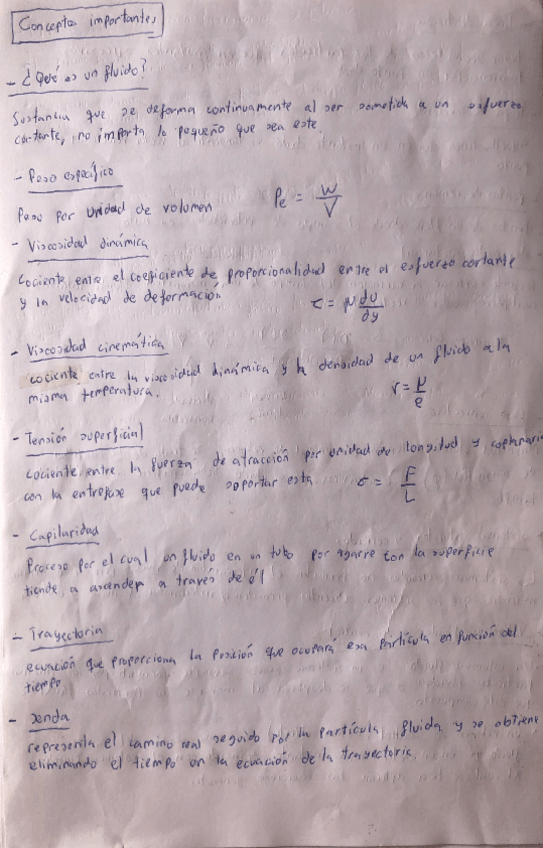 Conceptos importantes
- ¿Qué es un fluido?
Sustancia que se deforma continuamente al ser sometida a un esfuerzo
cortante, no importa lo pequeño que sea este.
- Peso específico
Peso por unidad de volumen Pe = W/V
- Viscosidad dinámica
Cociente entre el coeficiente de proporcionalidad entre el esfuerzo cortante
y la velocidad de deformación τ = μ du/dy
- Viscosidad cinemática
cociente entre la viscosidad dinámica y la densidad de un fluido a la
misma temperatura. ν = μ/ρ
- Tensión superficial
Cociente entre la fuerza de atracción por unidad de longitud y coplanaria
con la entrefase que puede soportar esta σ = F/L
- Capilaridad
Proceso por el cual un fluido en un tubo por agarre con la superficie
tiende a ascender a través de él
- Trayectoria
ecuación que proporciona la posición que ocupará esa partícula en función del
tiempo
- senda
representa el camino real seguido por la partícula fluida y se obtiene
eliminando el tiempo en la ecuación de la trayectoria.